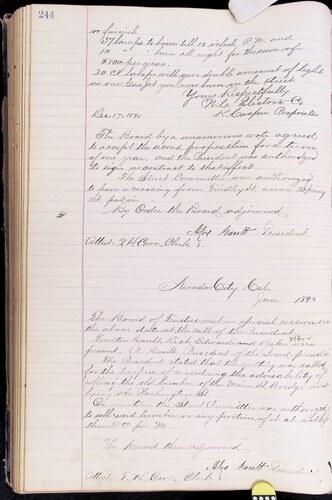 244
or furnish
37 lamps to burn till 12 o'clock P.M. and
10 " " burn all night for the sum of
per year.
20 C.P. lamps will give double amount of light
as one Gas jet you now burn on the street
Yours Respectfully
Co
Dec 17, 1891 K. Casper Proprietor
The Board by a unanimous vote agreed
to accept the second proposition for a term
of one year and the President was authorized
to sign a contract to that effect.
The Street Committee was authorized
to have a crossing from across Spring
St put in
By Order the Board adjourned
Alex Gault President
Attest T. H. Carr, Clerk
Nevada City Cal
Jan 1892
The Board of Trustees met in special session on
the above date at the call of the President
Trustees Gault, Rich, Edwards and & Carr were
present. A. Gault President of the Board presided
The President stated that the meeting was called
for the purpose of considering the advisability of
selling the old lumber of the Main St Bridge now
lying on St.
On motion the Street Committee was authorized
to sell said lumber or any portion of it at not less
than per M.
The Board then adjourned
Alex Gault President
Attest T. H. Carr, Clerk